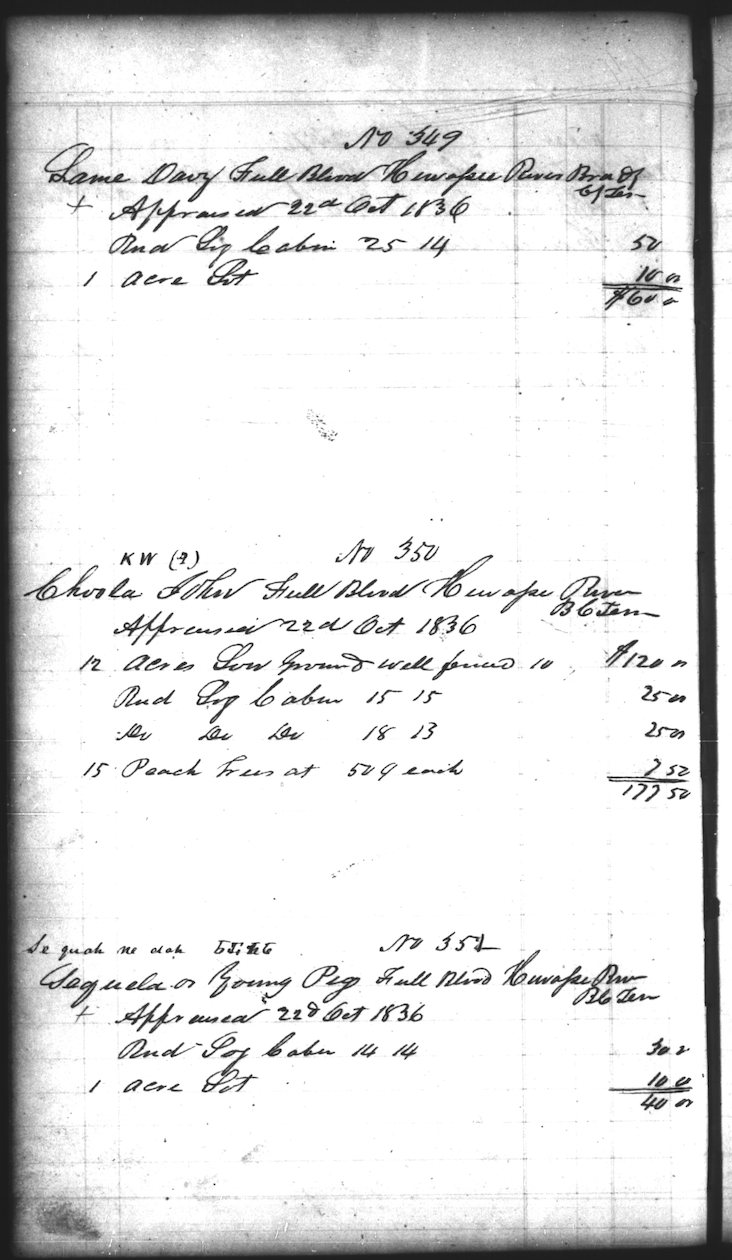 No 349
Lame Davy Full Blood Hiwassee River Brad
Cy Ten
+ Appraised 22d Oct 1836
Rnd Log Cabin 25 14 50
1 acre Lot 10 00
$60 0
KW (?)
No 350
Choola John Full Blood Hiwassee River
B C Ten
Appraised 22d Oct 1836
12 Acres Low Ground well fenced 10 $120 00
Rnd Log Cabin 15 15 25 00
Do Do Do 18 13 25 00
15 Peach Trees at 50 ¢ each 7 50
177 50
Se quah ne dah
No 351
Sequela or Young Pig Full Blood Hiwassee Rivr
B C Ten
+ Appraised 22d Oct 1836
Rnd Log Cabin 14 14 30 0
1 acre Lot 10 0
40 00